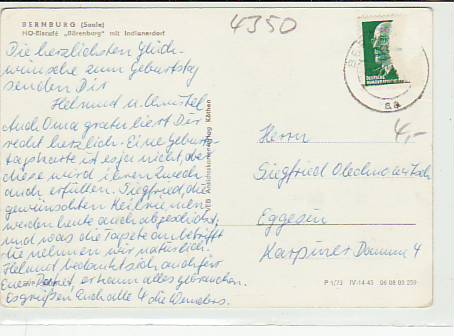 BERNBURG (Saale)
HO-Eiscafé „Bärenburg" mit Indianerdorf
4350
Die herzlichsten Glück-
wünsche zum Geburtstag
senden Dir
Helmut u. Christel
Auch Oma gratuliert Dir
recht herzlich. Eine Geburts-
tagskarte ist es ja nicht, aber
diese wird ihren Zweck
auch erfüllen. Siegfried, die
gewünschten Keilriemen
werden heute auch abgeschickt,
und was die Tapete anbetrifft
die nehmen wir natürlich.
Helmut bedankt sich auch für
Euer er kann alles gebrauchen.
Es grüßen Euch alle 4 die Wenders.
VEB Ansichtskartenverlag Köthen
DEUTSCHE
4,-
Herrn
Siegfried
Eggesin
Karpiner Damm 4
P 1/73 IV-14-45 06 08 03 259